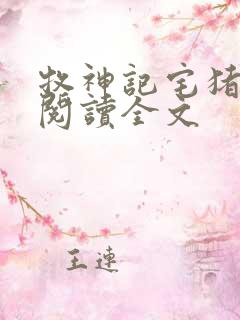 牧神記宅猪
閱讀全文
王連